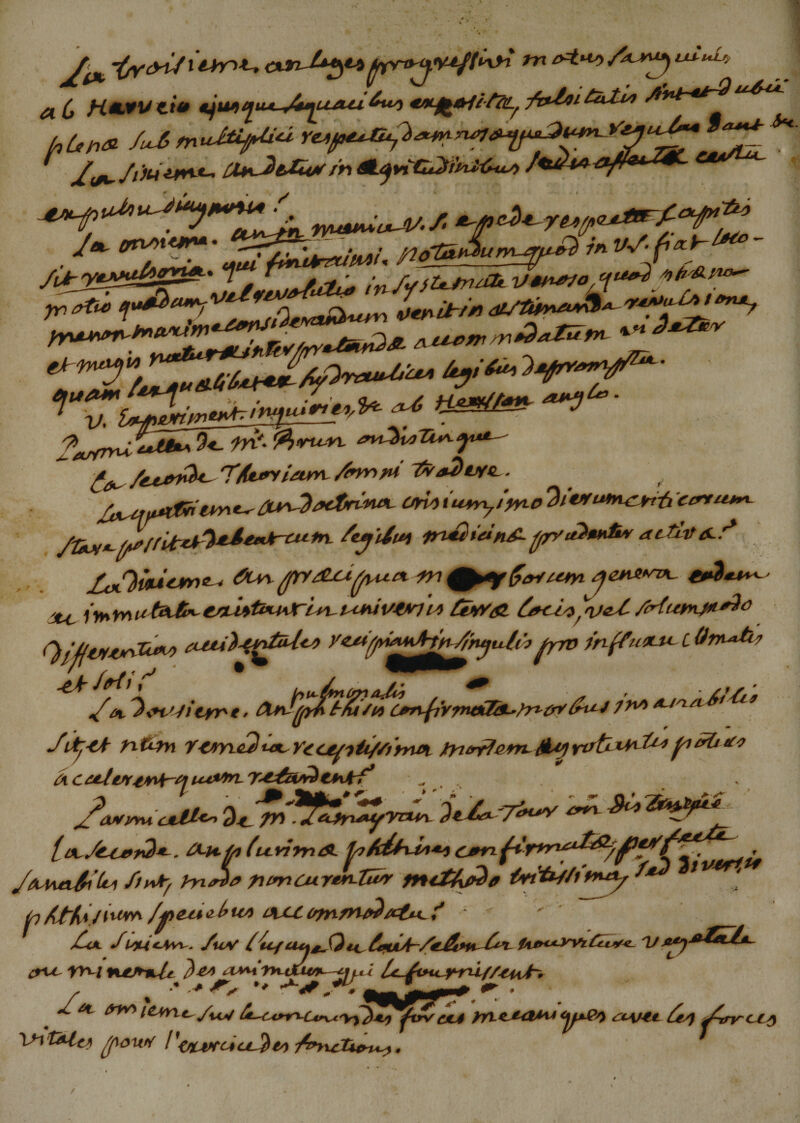 La troisieme. an leges progressivi motus sanguinis
ab Harveio ejusque sequacibus expositæ, falsitatis sint et dubii
plenæ sub multiplici respectu, damnosæque dum regulas dant &c
La sixieme. An detur in ægritudinibus sedis affectæ certa
ex pulsu diagnosis?
La onsieme. an in manica v. s. e pede respectu Capitis
sit revulsoria. qui finit ainsi. Notandum quod in v.s. fiat loco-
motio quædam, vel revolutio in systemate venoso, quod phæno-
menon maxime considerandum venit in æstimanda revulsione,
et magis naturæ interpretandæ accommodatum videtur
quam lex quælibet ex hydraulices legibus deprompta.
v. Experiment. inquiries, &c ab Hewson anglo.
Parmi celles de mr. Brun on distingue
La seconde Theoriam somni tradere.
La quatrieme. an doctrina crisium, imo dierum criticorum
stare possit et debeat cum legibus medicinæ prudenter activæ?
La dixieme. An præcipua morborum genera eadem
ac immutata existant in universis terræ locis, vel solummodo
differentias accidentales recipiant in singulis pro influxu climatis
et soli?
La dousieme. an phthisis pulmonalis confirmata morbus insanabilis
sit, et num remedia receptissima mortem ægrotantis potius
accelerent quam retardent?
Parmi celles de m. Lamayran de la Tour on distingue
La seconde. an plurimæ phthises confirmatæ, perfecte
sanabiles sint, modo non curentur methodo tritissima, sed diversis
phthisium speciebus accommodata?
La sixiem. sur l'usage du lait selon la nourriture vegetale
ou minerale des animaux qui le fournissent.
La onsieme sur le concours des forces mecaniques avec les forces
vitales pour l'exercice des fonctions.